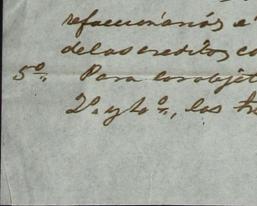 refaccionarios, é
de los creditos, co
5º Para los objet
2º y 4º, los tr